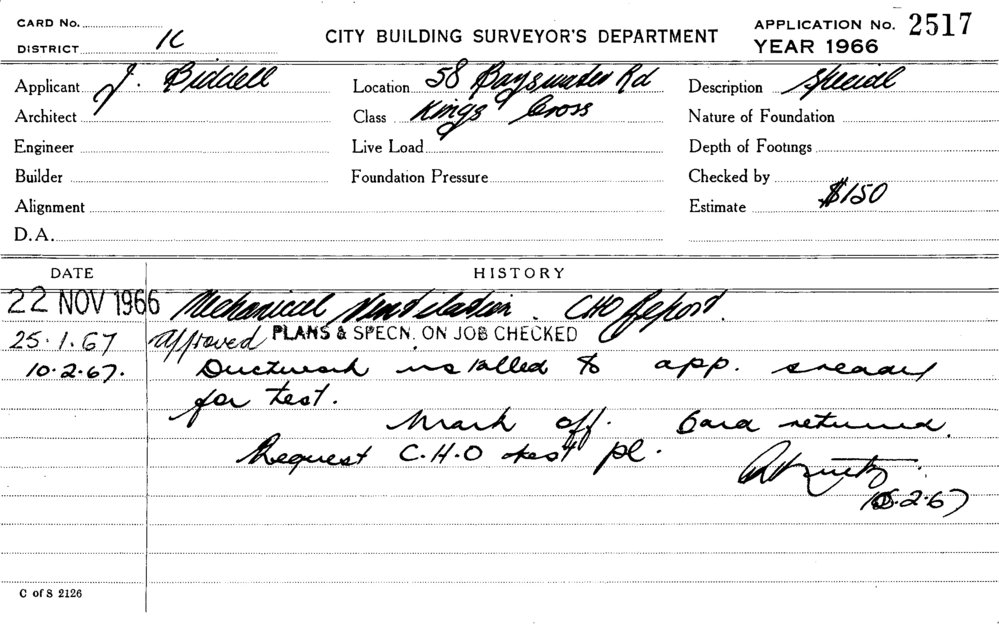 CARD No.
DISTRICT 1C
CITY BUILDING SURVEYOR'S DEPARTMENT
APPLICATION No. 2517
YEAR 1966
Applicant J. Biddell
Location 58 Bayswater Rd
Description Special
Architect
Class Kings Cross
Nature of Foundation
Engineer
Live Load
Depth of Footings
Builder
Foundation Pressure
Checked by
Alignment
Estimate $150
D.A.
DATE HISTORY
22 NOV 1966 Mechanical Ventilation. CHO Report.
25.1.67 approved PLANS & SPECN. ON JOB CHECKED
10.2.67. Ductwork installed to app. & ready
for test.
Mark off. Card returned.
Request C.H.O test pl.
10.2.67
C of S 2126